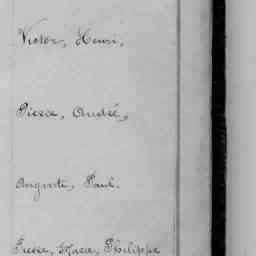 Victor, Henri,
Pierre, André,
Auguste, Paul.
Pierre, Marie, Philippe